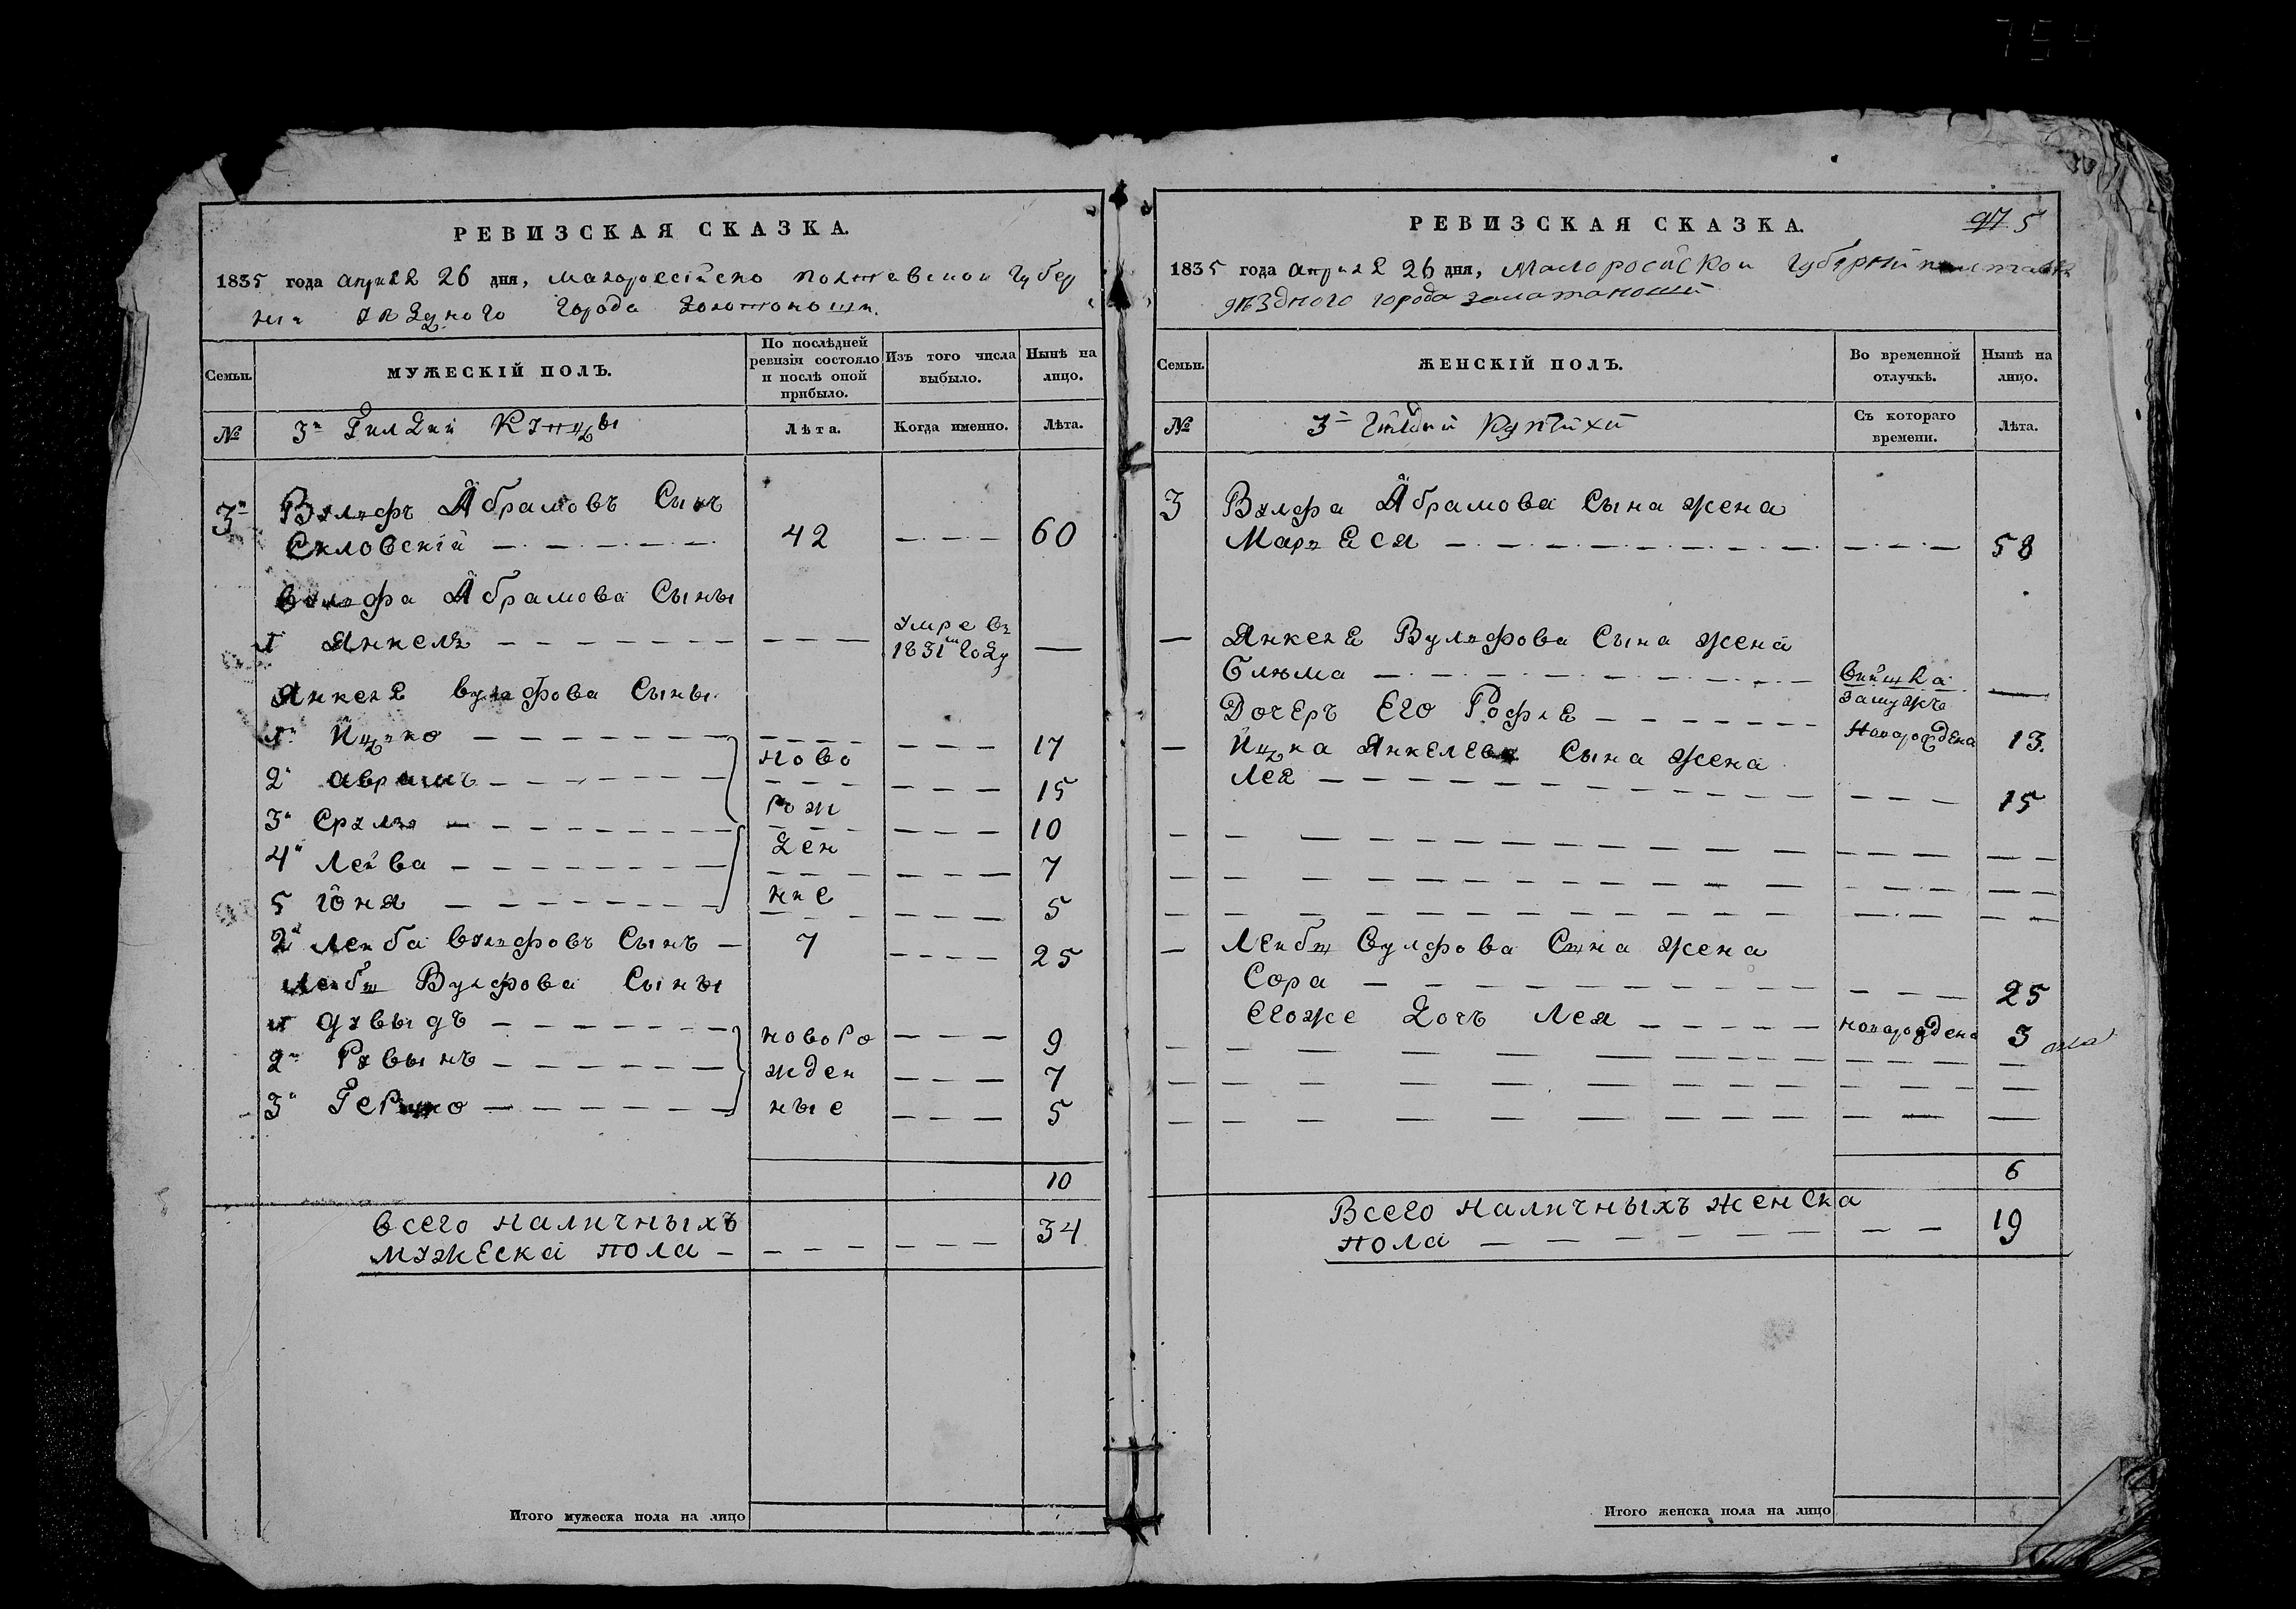 754
РЕВИЗСКАЯ СКАЗКА.
1835 года апреля 26 дня, малоросейско полтавской губер
нии уездного города золотоноши.
Семьи. МУЖЕСКІЙ ПОЛЪ. По послѣдней ревизіи состояло и послѣ оной прибыло. Изъ того числа выбыло. Нынѣ на лицо.
№ 3й Гилдии Купцы Лѣта. Когда именно. Лѣта.
3й Вулфъ Абрамовъ Сынъ
Скловскій — 42 — 60
Вулфа Абрамова Сыны
1 Янкель — — умре въ 1831м году —
Янкеля вулфова Сыны
1й Ицко — — 17
2й аврамъ — — 15
3й Сруль — — 10
4й Лейва — — 7
5 Іоня — — 5
новорожденние
2й Лейба вулфовъ Сынъ — 7 — 25
Лейбы Вулфова Сыны
1 Дувыдъ — — 9
2й Рувынъ — — 7
3й Гершко — — 5
новорожденные
10
всего наличныхъ
мужеска пола — — — 34
Итого мужеска пола на лицо
РЕВИЗСКАЯ СКАЗКА. 97. 5
1835 года апреля 26 дня, Малоросійской губерний полтавск
уѣздного города залатаноши
Семьи. ЖЕНСКІЙ ПОЛЪ. Во временной отлучкѣ. Нынѣ на лицо.
№ 3й гилдии купчихи Съ котораго времени. Лѣта.
3 Вулфа Абрамова Сына жена
Марьеся — — 58
— Янкеля Вулфова Сына жена
Блюма — вийшла замужъ —
Дочеръ Его Рофле — новорождена 13.
— Ицка Янкелева Сына жена
Лея — — 15
— Лейбы Вулфова Сына жена
Сора — — 25
Егоже Дочъ Лея — новорождена 3
6
Всего наличныхъ женска
пола — — 19
Итого женска пола на лицо